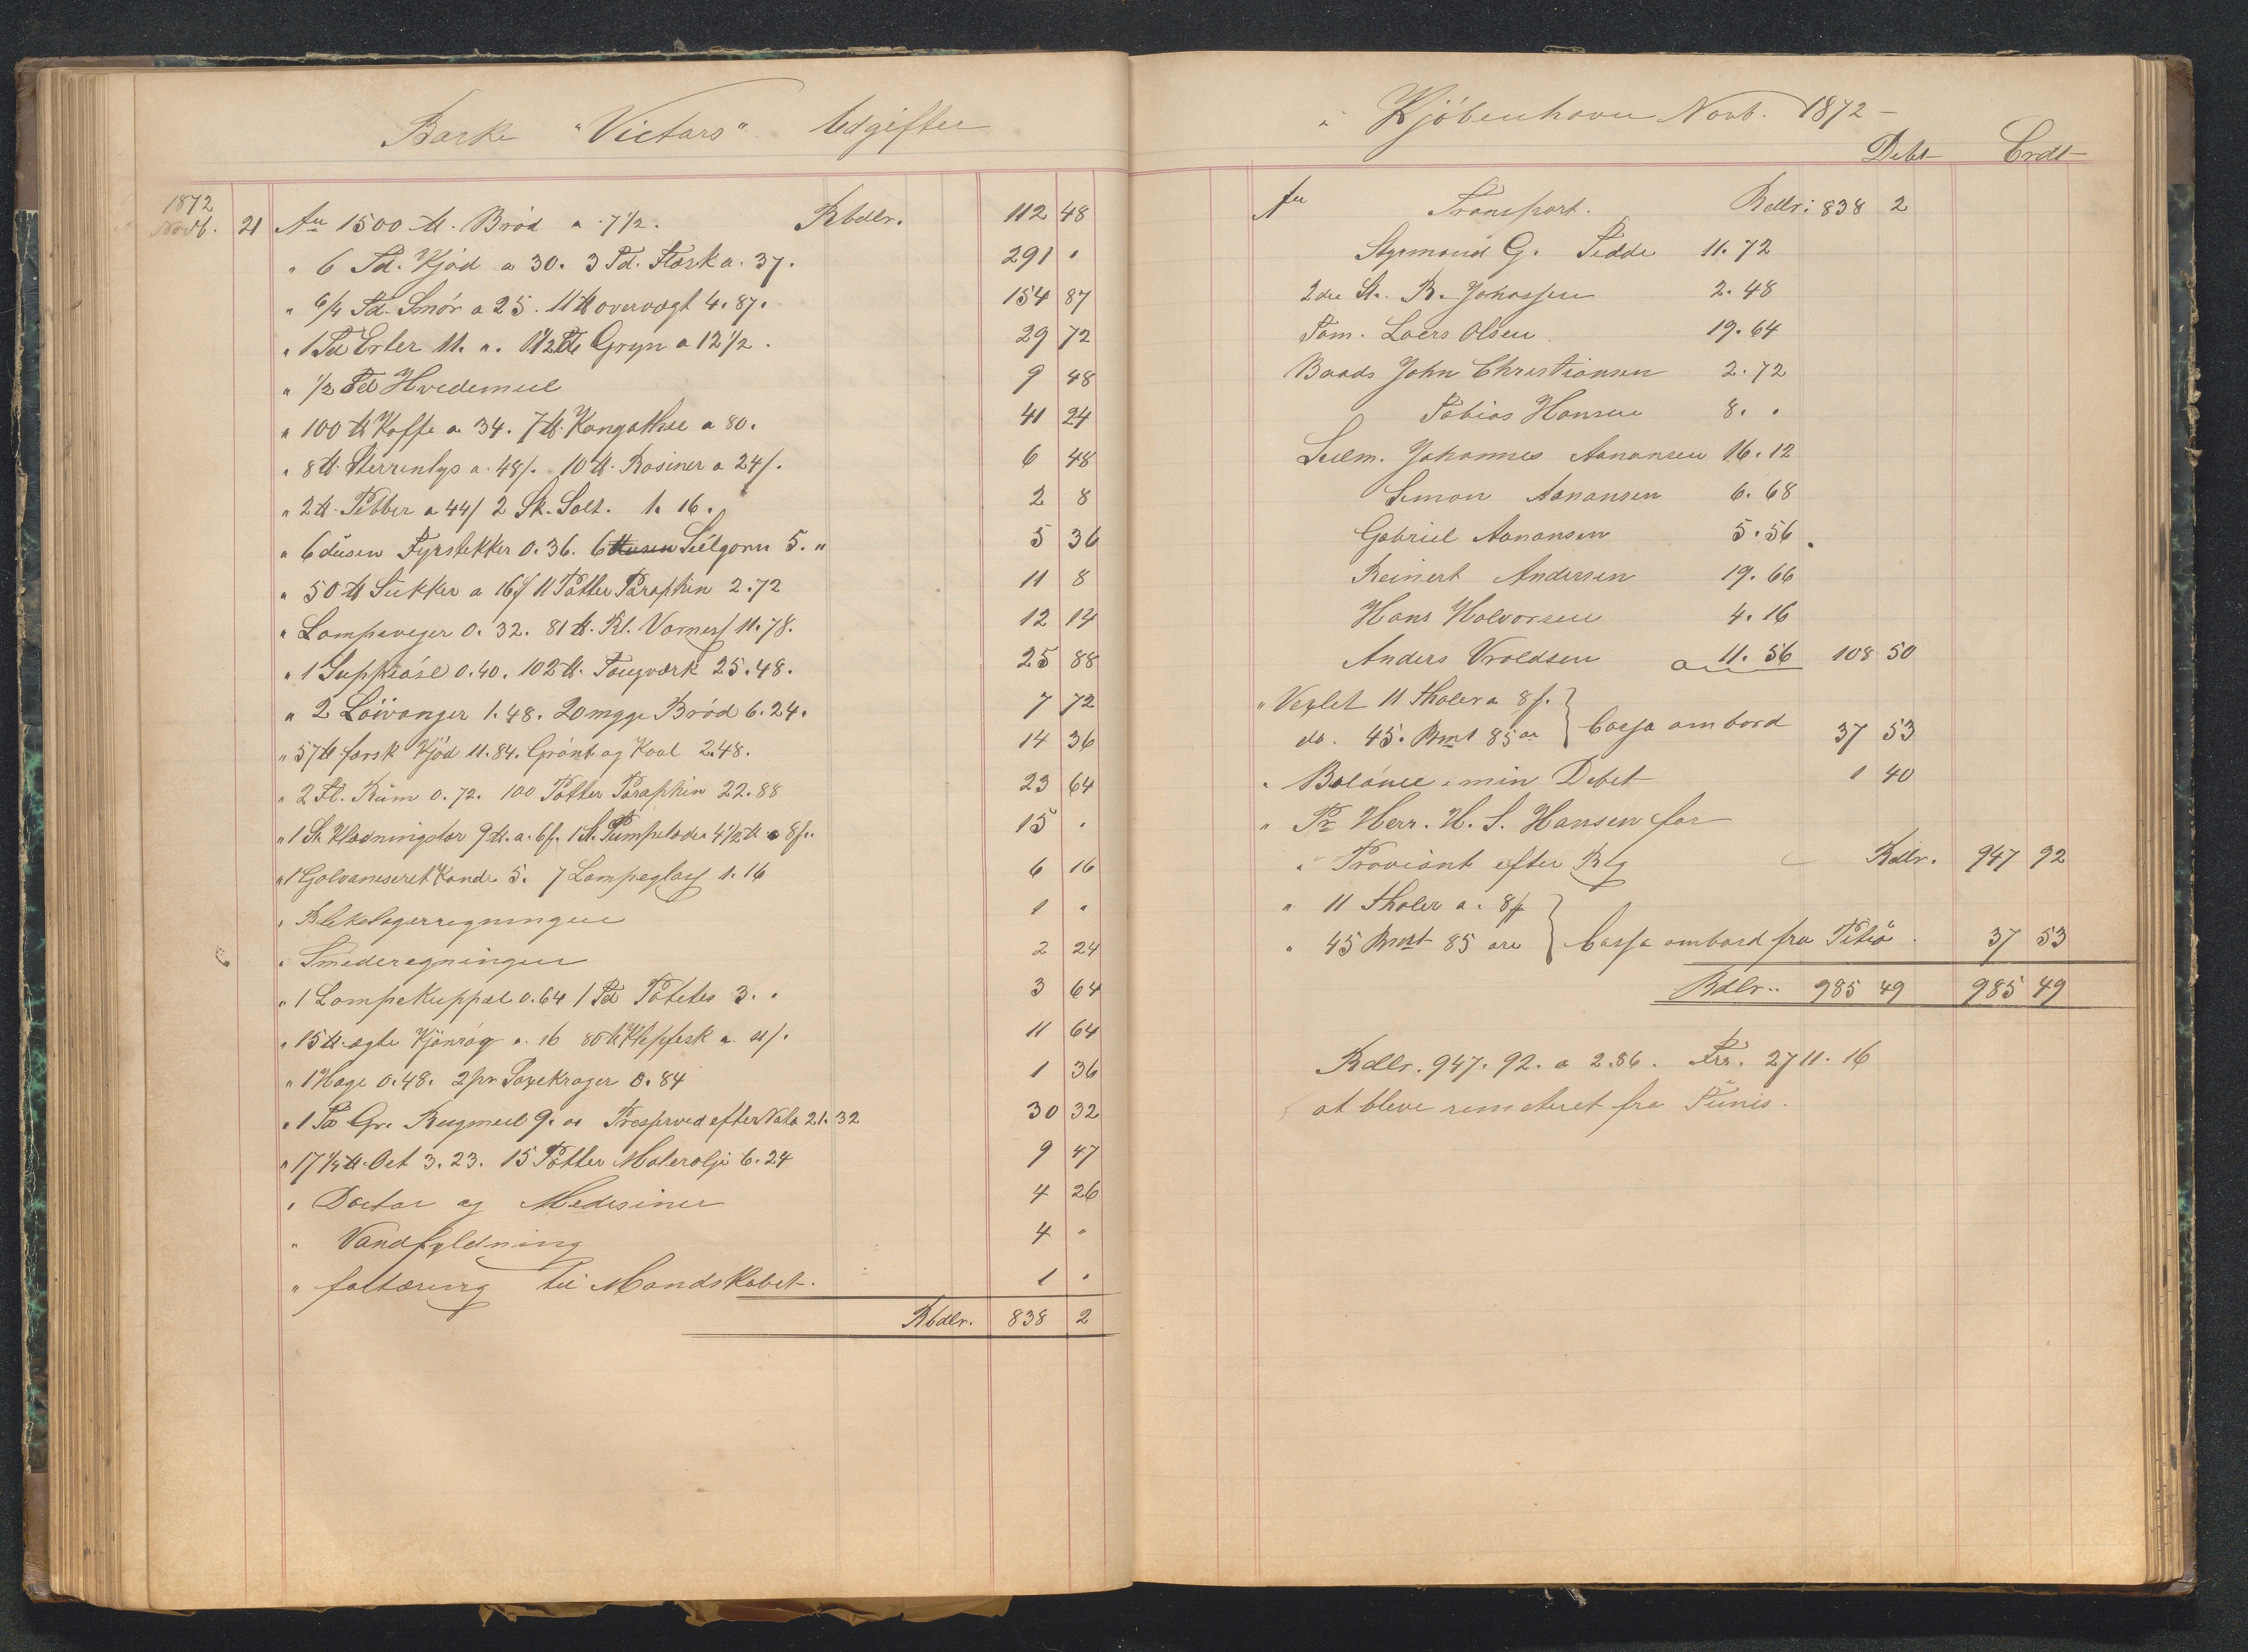 Barke "Victars" Udgifter
1872
Novb. 21 An 1500 ℔. Bród a 7½. Rbdlr. 112 48
" 6 Td. Kjód a 30. 3 Td. Flæsk a. 37. 291 "
" 6/4 Td. Smór a 25. 11 ℔ overvægt 4.87. 154 87
" 1 Td Erter 11. ". 1½ Td Gryn a 12½. 29 72
" ½ Td Hvedemeel 9 48
" 100 ℔ Kaffe a 34. 7 ℔. Kongothee a 80. 41 24
" 8 ℔. Sterrinlys a. 48/. 10 ℔. Rosiner a 24/. 6 48
" 2 ℔. Pebber a 44/ 2 Sk. Salt. 1. 16. 2 8
" 6 dúsen Fyrstekker 0.36. 6 Seilgarn 5. " 5 36
" 50 ℔ Sukker a 16/ 11 Potter Paraphin 2.72 11 8
" Lampeveger 0.32. 81 ℔. 11.78. 12 14
" 1 0.40. 102 ℔. Tougværk 25.48. 25 88
" 2 1.48. 20 mgge Bród 6.24. 7 72
" 57 ℔ farsk Kjód 11.84. Grónt og Kaal 2.48. 14 36
" 2 Fl. Rúm 0.72. 100 Potter Paraphin 22.88 23 64
" 1 St. Klædningslær 9 ℔. a. 6/. 1 St. Pumpelæder 4½ ℔ a 8/. 15 "
" 1 Galvaniseret Kande 5. 7 Lampeglas 1.16 6 16
" Blikslagerregningen 1 "
" Smederegningen 2 24
" 1 Lampekuppel 0.64 1 Td Potetes 3. " 3 64
" 15 ℔. ægte Kjónróg a. 16 80 ℔ Klepfesk a 11/. 11 64
" 1 Hage 0.48. 2 pr 0.84 1 36
" 1 Td Gr. Rugmeel 9. " efter Nota 21.32 30 32
" 17¼ ℔. Ost 3.23. 15 Potter Malerolje 6.24 9 47
" Doctor og Medesiner 4 26
" Vandfyldning 4 "
" fortæring til Mandskabet. 1 "
Rbdlr. 838 2
i Kjóbenhavn Novb. 1872
Debt Crdt
An Transport. Rdlr: 838 2
Styrmand G. Tedde 11.72
2den St. B. Johassen 2.48
Tóm. Laers Olsen 19.64
Baads John Christiansen 2.72
Tobias Hansen 8. "
Seilm. Johannes Aanansen 16.12
Simon Aanansen 6.68
Gabriel Aanansen 5.56
Reinert Andersen 19.66
Hans Halvorsen 4.16
Anders Vroldsen 11.56 108 50
" Vexlet 11 thaler a 8/.
do. 45. Bmt 85 or } Cassa ombord 37 53
" Balance i min Debet 1 40
" Pr Herr. H. S. Hansen for
" Proviant efter Rlg Rdlr. 947 92
" 11 thaler a. 8/
" 45 Bmt 85 ore } Cassa ombord fra Piteå. 37 53
Rdlr.. 985 49 985 49
Rdlr. 947.92. a 2.86. Frs. 2711.16
at bleve remeteret fra Túnis.